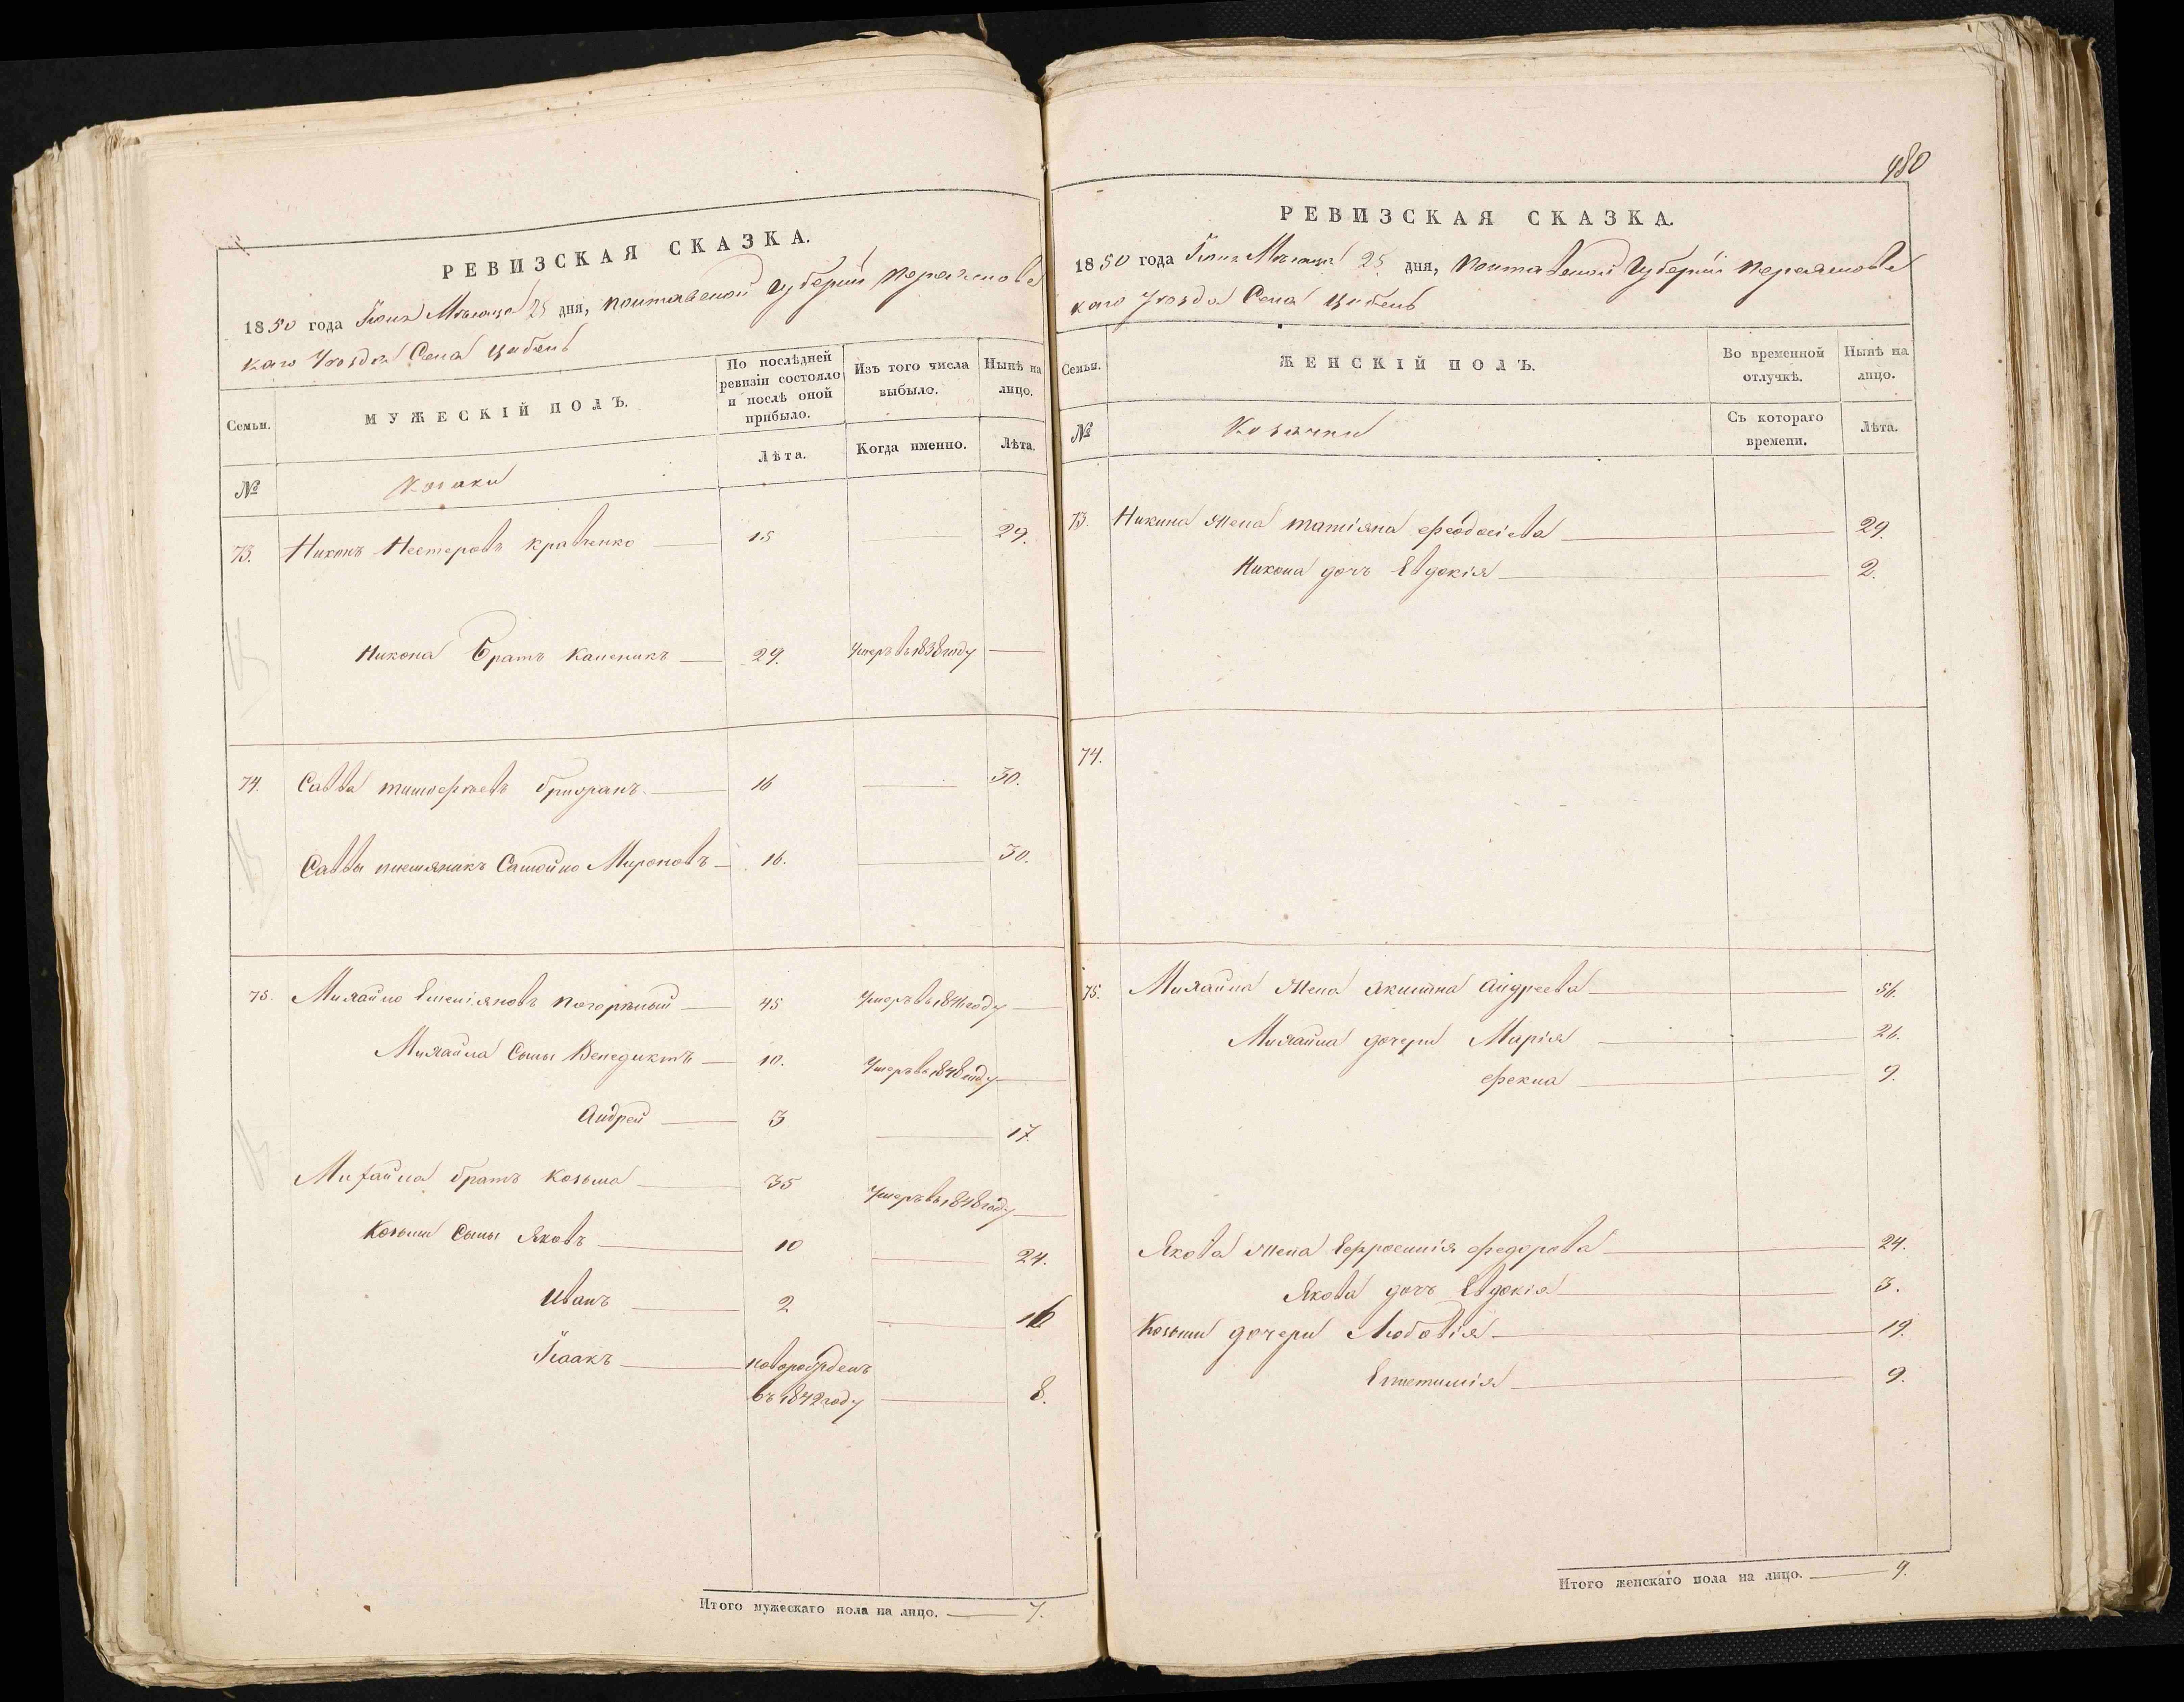 РЕВИЗСКАЯ СКАЗКА.
1850 года Іюня Мѣсяца 25 дня, Полтавской Губерніи Переяслов
каго Уѣзда Села Цибель
Семьи.
МУЖЕСКІЙ ПОЛЪ.
По послѣдней
ревизіи состояло
и послѣ оной
прибыло.
Изъ того числа
выбыло.
Нынѣ на
лицо.
№
Козаки
Лѣта.
Когда именно.
Лѣта.
73. Никонъ Нестеровъ Кравченко 15 29.
Никона Братъ Каленикъ 29. Умеръ въ 1838 году
74. Савва Тимофѣевъ 16 30.
Саввы племяникъ Самойло Мироновъ 16. 30.
75. Михайло Емеліяновъ Погорѣлый 45 Умеръ въ году
Михайла Сыны Венедиктъ 10. Умеръ въ 1848 году
Андрей 3 17.
Михайла братъ Козьма 35 Умеръ въ 1848 году
Козьмы Сыны Яковъ 10 24.
Иванъ 2 16
Ісаакъ новорожденъ
въ 1842 году 8.
Итого мужескаго пола на лицо. 7.
480
РЕВИЗСКАЯ СКАЗКА.
1850 года Іюня Мѣсяца 25 дня, Полтавской Губерніи Переяслов
каго Уѣзда Села Цибель
Семьи.
ЖЕНСКІЙ ПОЛЪ.
Во временной
отлучкѣ.
Нынѣ на
лицо.
№
Козачки
Съ котораго
времени.
Лѣта.
73. Никона Жена Татіяна Феодосіева 29.
Никона дочь Евдокія 2.
74.
75. Михайла Жена Акилина Андреева 56.
Михайла дочери Марія 26.
Фекла 9.
Якова Жена Ефросинія Федорова 24.
Якова дочь Евдокія 3.
Козьмы дочери Любовія 19.
Епистимія 9.
Итого женскаго пола на лицо. 9.